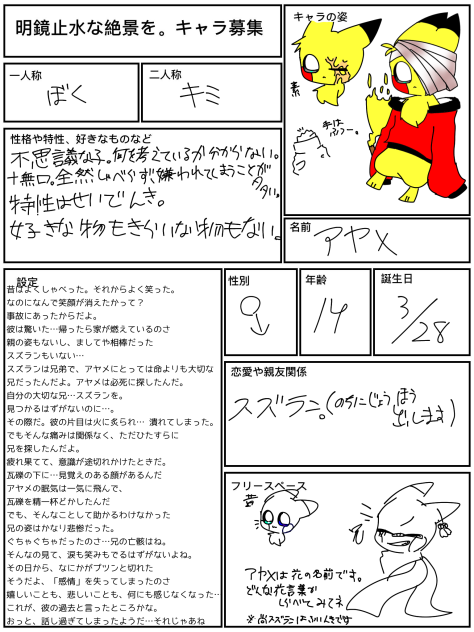 明鏡止水な絶景を。キャラ募集
キャラの姿
素
手は
ふつー。
一人称
ぼく
二人称
キミ
性格や特性、好きなものなど
不思議な子。何を考えているか分からない。
十無口。全然しゃべらず嫌われてしまうことが
タタい。
特性はせいでんき。
好きな物もきらいな物もない。
名前
アヤメ
設定
昔はよくしゃべった。それからよく笑った。
なのになんで笑顔が消えたかって？
事故にあったからだよ。
彼は驚いた…帰ったら家が燃えているのさ
親の姿もないし、ましてや相棒だった
スズランもいない…
スズランは兄弟で、アヤメにとっては命よりも大切な
兄だったんだよ。アヤメは必死に探したんだ。
自分の大切な兄…スズランを。
見つかるはずがないのに…。
その際だ。彼の片目は火に炙られ… 潰れてしまった。
でもそんな痛みは関係なく、ただひたすらに
兄を探したんだよ。
疲れ果てて、意識が途切れかけたときだ。
瓦礫の下に…見覚えのある顔があるんだ
アヤメの眠気は一気に飛んで、
瓦礫を精一杯どかしたんだ
でも、そんなことして助かるわけなかった
兄の姿はかなり悲惨だった。
ぐちゃぐちゃだったのさ…兄の亡骸はね。
そんなの見て、涙も笑みもでるはずがないよね。
その日から、なにかがプツンと切れた
そうだよ、「感情」を失ってしまったのさ
嬉しいことも、悲しいことも、何にも感じなくなった…
これが、彼の過去と言ったところかな。
おっと、話し過ぎてしまったようだ…それじゃあね
性別
♂
年齢
14
誕生日
3/28
恋愛や親友関係
スズラン。(のちにじょうほう
出します)
フリースペース
昔
アヤメは花の名前です。
どんな花言葉か
しらべてみてネ
※尚スズランはふいんきです